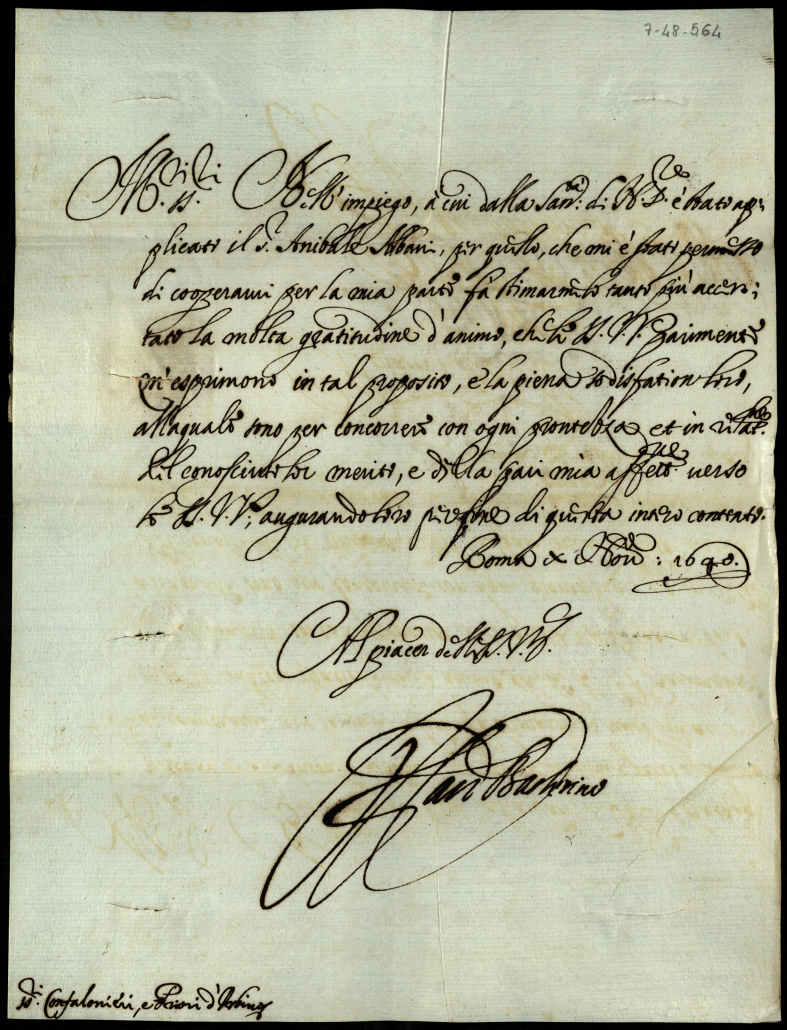 7-48-564
M.ri SS.ri Nell'impiego, à cui dalla San.tà di N. S.re è stato ap-
plicato il S.r Anibale Albani, per quello, che mi è stato permesso
di cooperarui per la mia parte fà stimarmelo tanto più accer-
tato la molta gratitudine d'animo, che le SS. VV. parimente
m'esprimono in tal proposito, e la piena sodisfation loro,
alla quale sono per concorrere con ogni prontezza et in
del conosciuto lor merito, e della pari mia verso
le SS. VV., augurando loro per fine di questa intero contento.
Roma X 9.bre 1640.
Al piacer delle SS. VV.
Barberino
SS.ri Confalonieri, e Priori d'Urbino